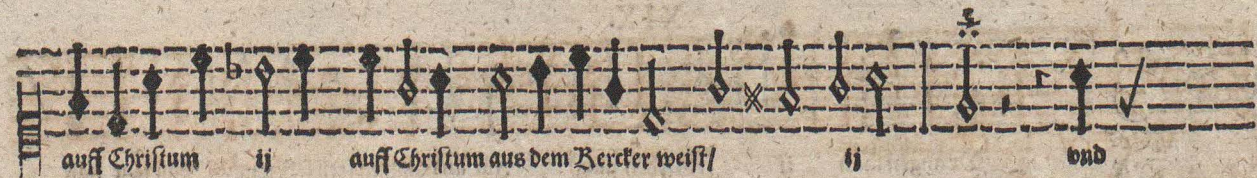 auff Chriſtum ij auff Chriſtum aus dem Kercker weiſt/ ij vnd